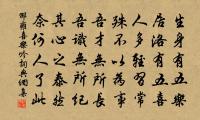 生身有五樂
居洛有五喜
人多輕習常
殊不以為事
吾才無所長
吾識無所紀
其心之泰然
奈何人了此
邵雍喜樂吟詞典網集